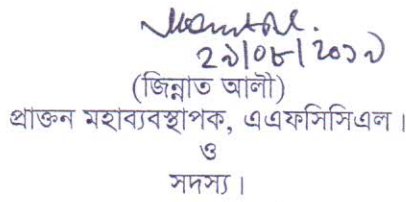 ২৯/০৮/২০১৯
(জিন্নাত আলী)
প্রাক্তন মহাব্যবস্থাপক, এএফসিসিএল।
ও
সদস্য।